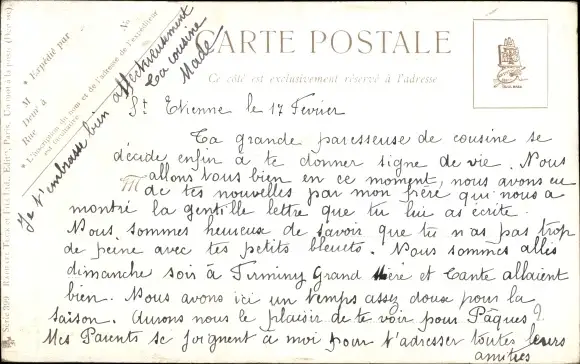 CARTE POSTALE
Ce côté est exclusivement réservé à l'adresse
* Expédié par
M
Demt à
Rue
No
* L'inscription du nom et de l'adresse de l'expéditeur
est facultative.
St Etienne le 17 Fevrier
Ta grande paresseuse de cousine se
décide enfin à te donner signe de vie. Nous
allons tous bien en ce moment, nous avons eu
de tes nouvelles par mon frère qui nous a
montré la gentille lettre que tu lui as écrite.
Nous sommes heureux de savoir que tu n'as pas trop
de peine avec tes petits bleuets. Nous sommes allés
dimanche soir à Firminy Grand Mère et Tante allaient
bien. Nous avons ici un temps assez doux pour la
saison. Aurons nous le plaisir de te voir pour Pâques?
Mes Parents se joignent à moi pour t'adresser toutes leurs
amitiés
Je t'embrasse bien affectueusement
Ta cousine
Made